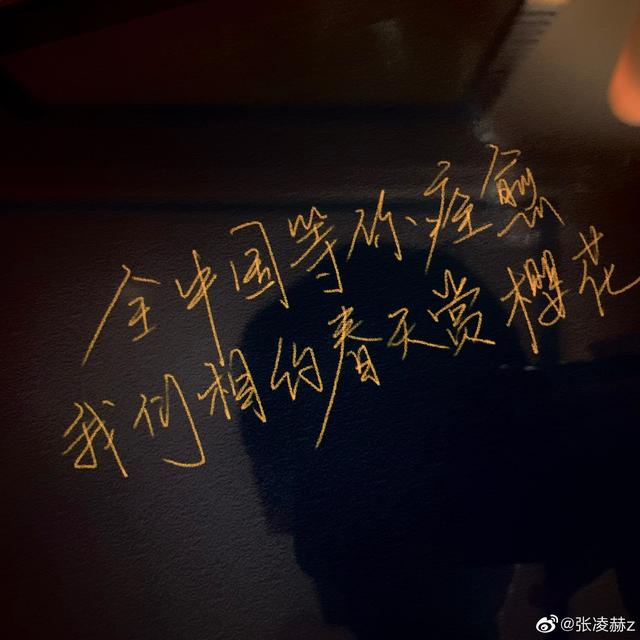 全中国等你痊愈
我们相约春天赏樱花
@张凌赫z